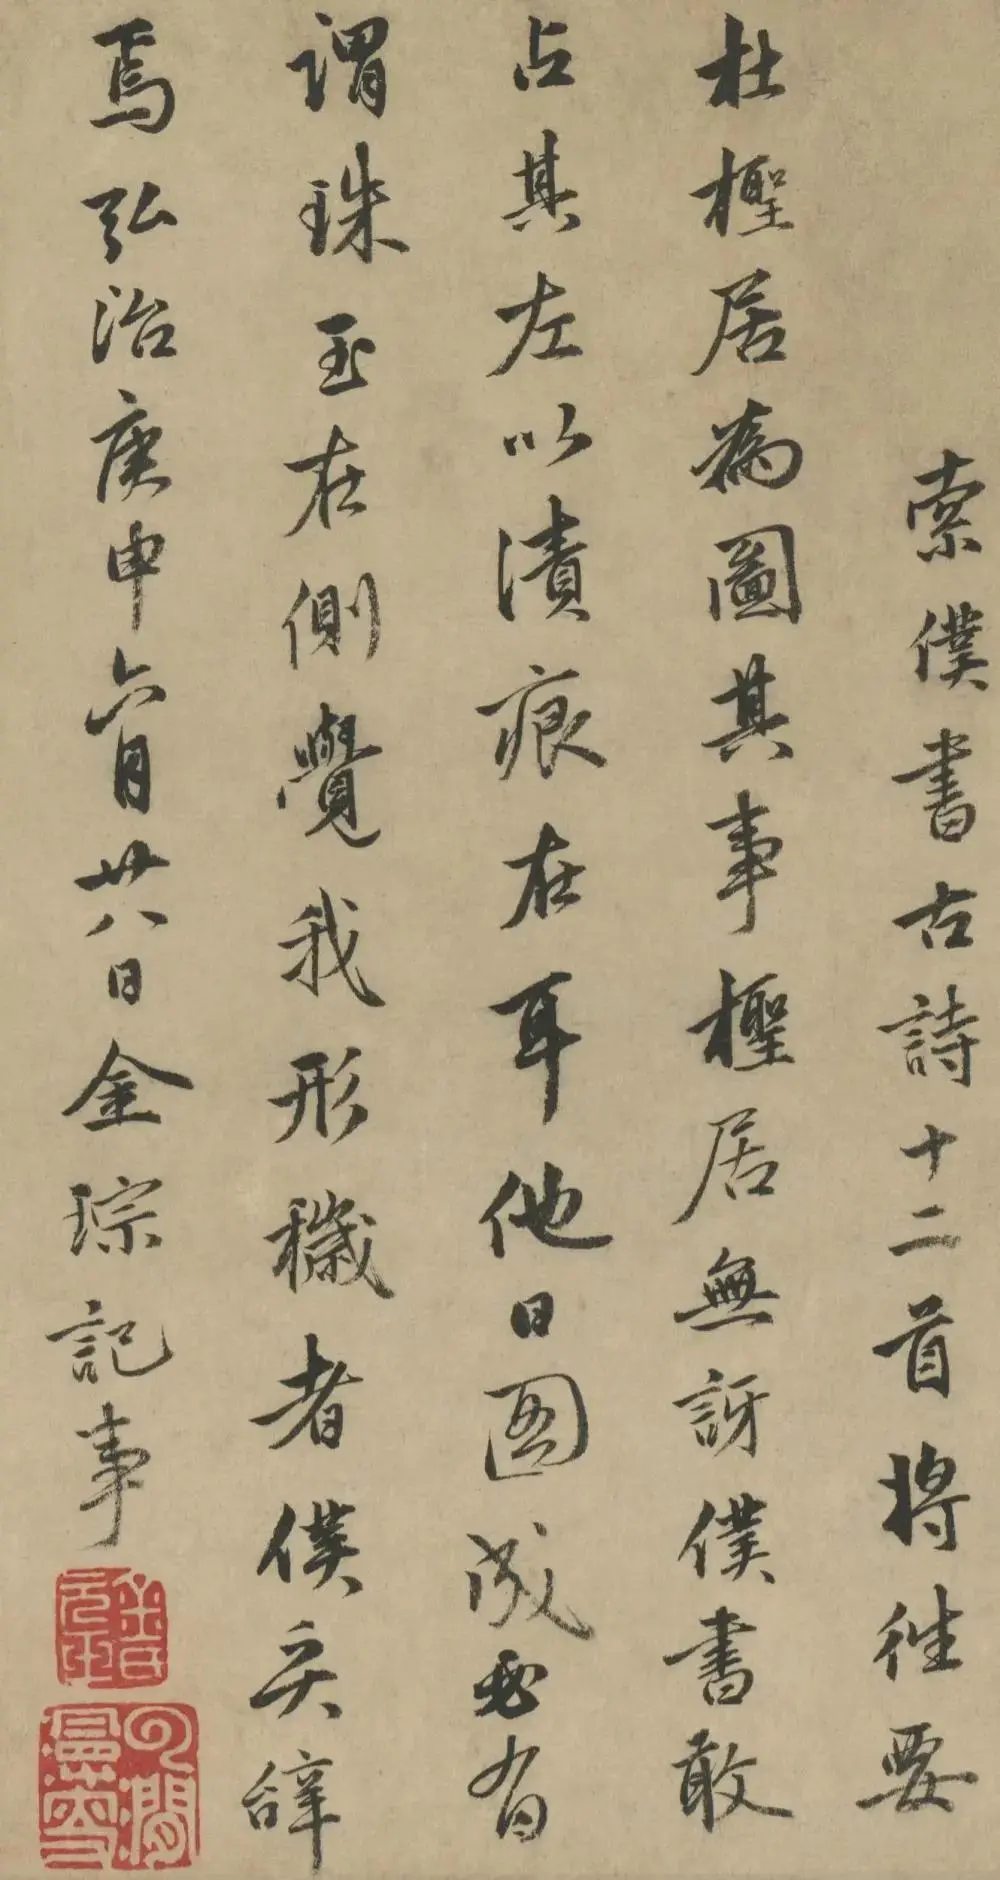 索僕書古詩十二首將往要
杜檉居為圖其事檉居無訝僕書敢
占其左以漬痕在耳他日圖成必有
謂珠玉在側覺我形穢者僕奚辭
焉弘治庚申六月廿八日金琮記事